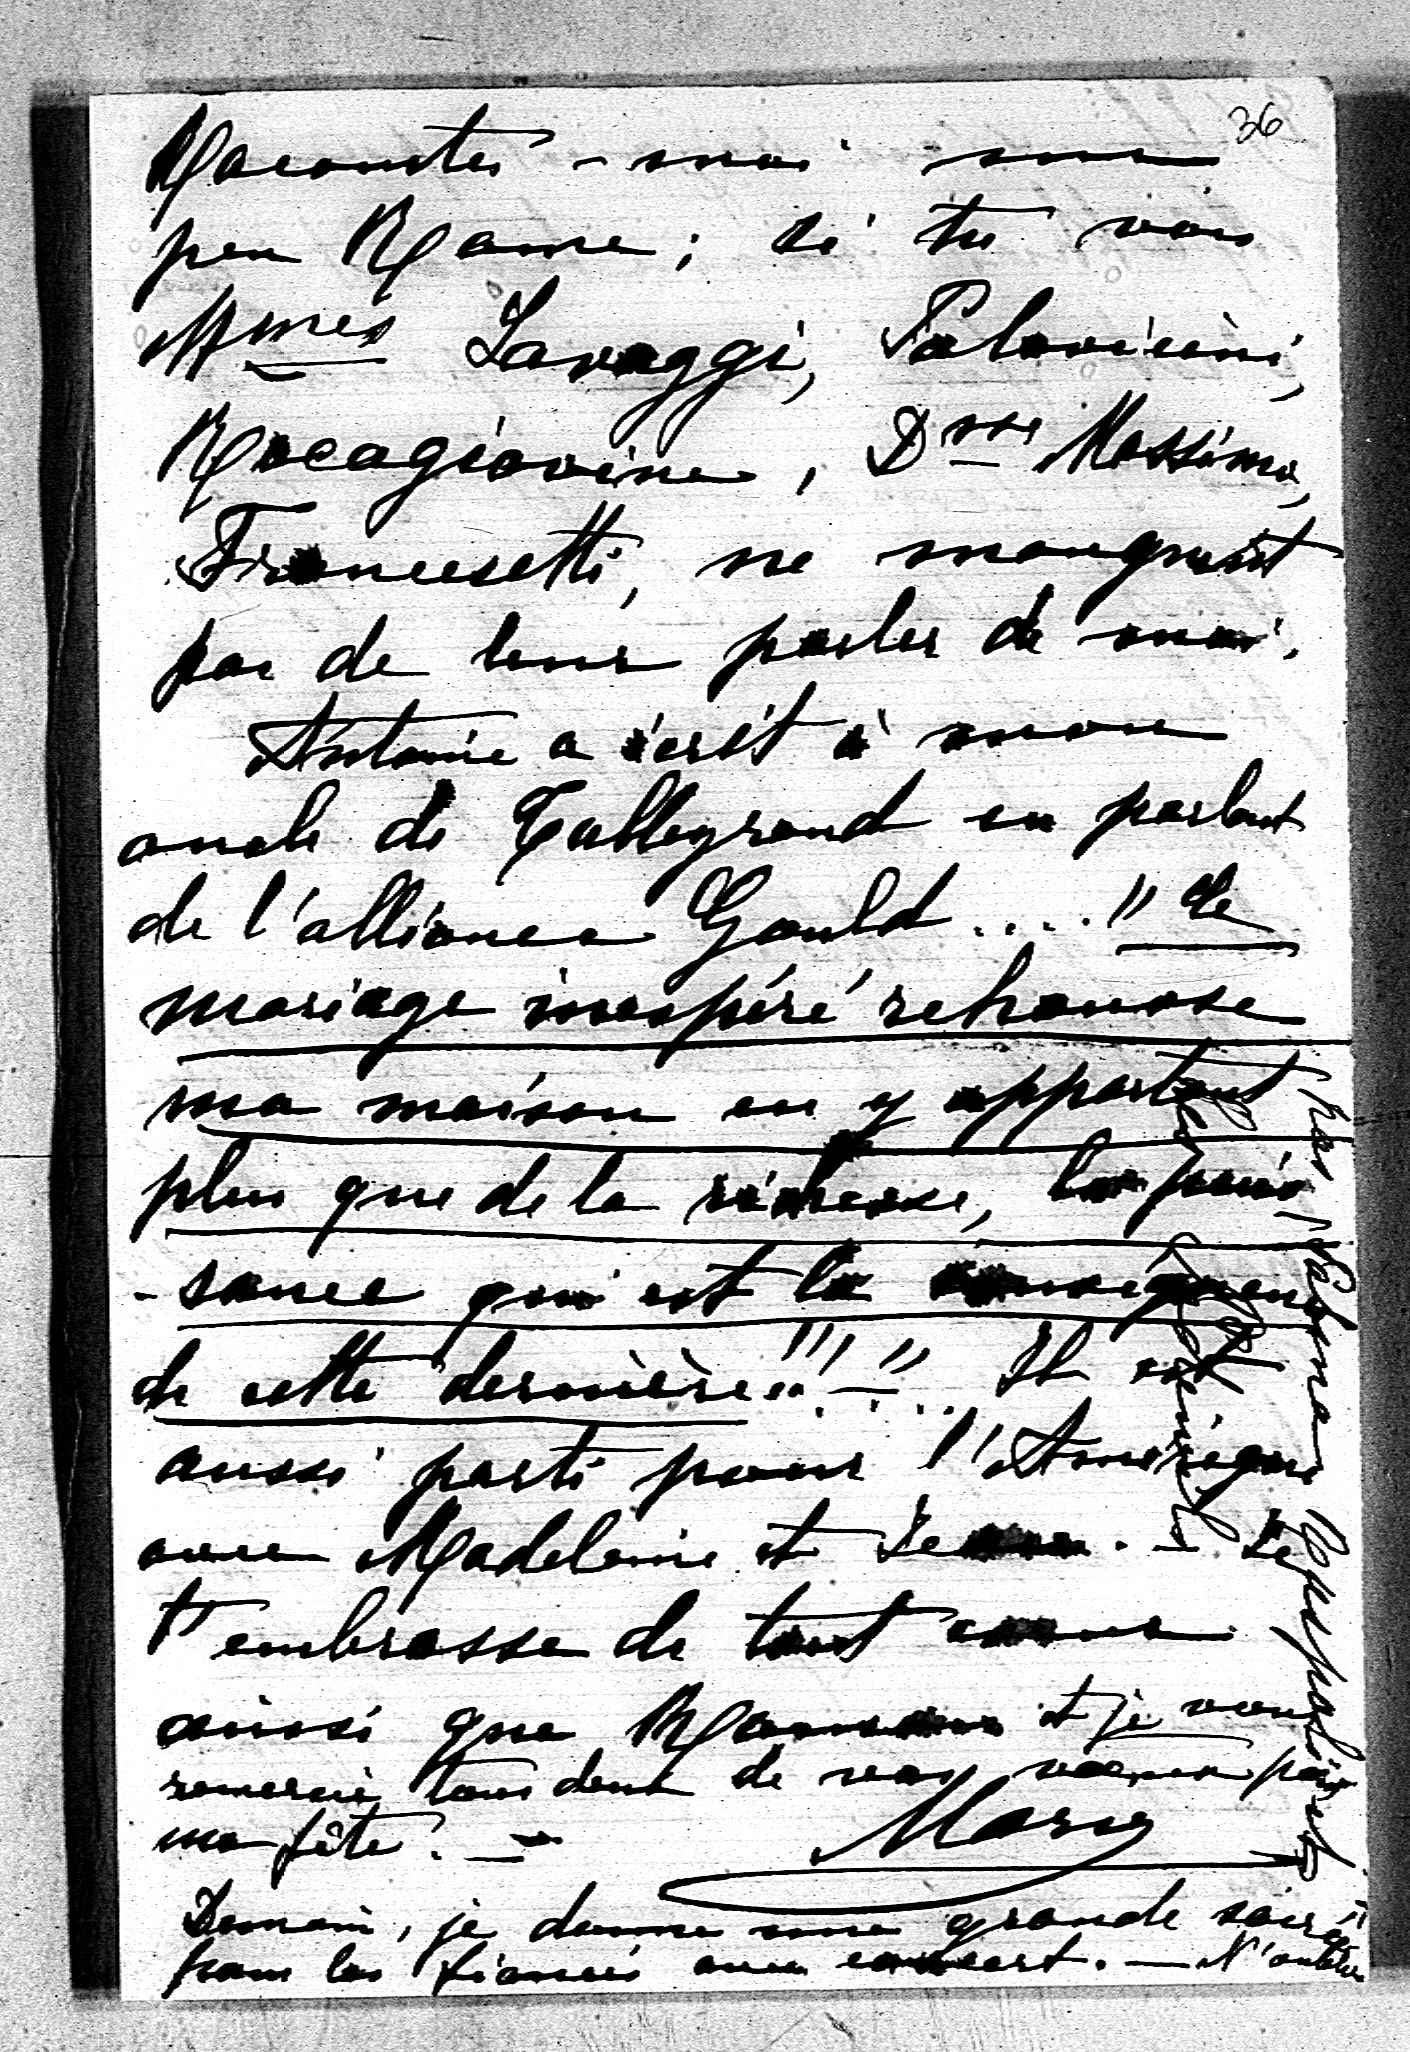 36
Racontes-moi un
peu Rome ; si tu vois
Mmes Lavaggi, Palavicini,
Rocagiovine, Dsse Massimo,
Francesetti, ne manquest
pas de leur parler de moi.
Antoine a écrit à mon
oncle de Talleyrand en parlant
de l'alliance Gould .... "Ce
mariage inespéré rehausse
ma maison en y apportant
plus que de la richesse, la puis
-sance qui est la conséquence
de cette dernière!!! — " Il est
aussi parti pour l'Amérique
avec Madeleine et Jeanne. — Je
t'embrasse de tout cœur
ainsi que Maman et je vous
remercie tous deux de vos vœux pour
ma fête. — Mary
Demain, je donne une grande soirée
pour les fiancés avec concert. — N'oublie
pas Paloma